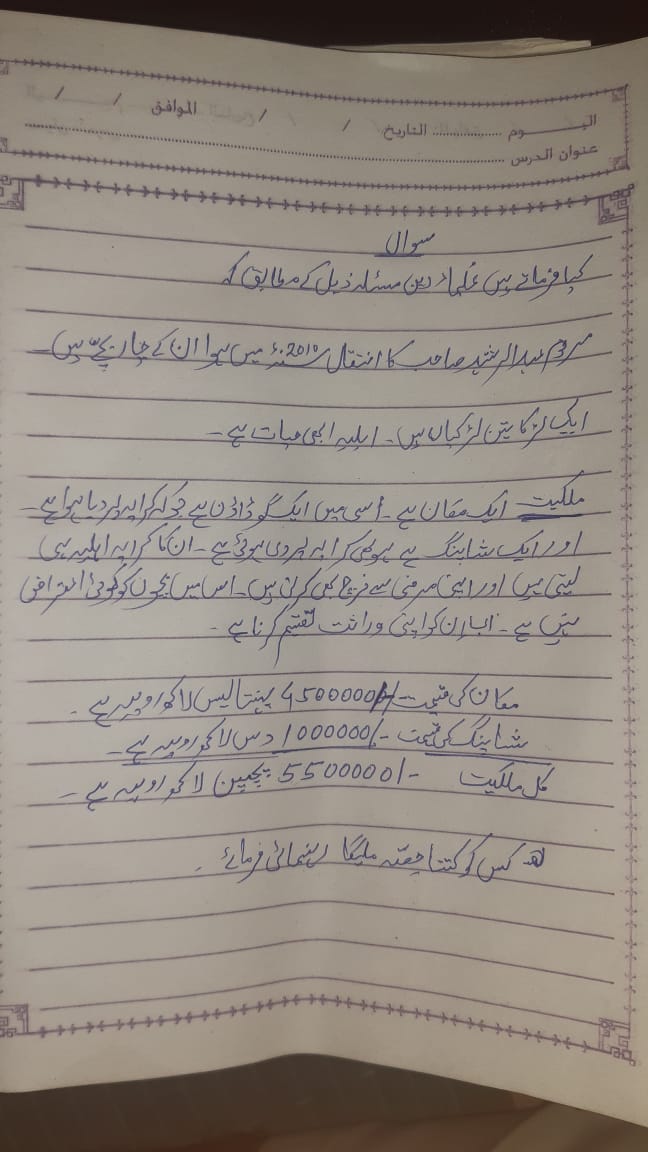 اليـــــوم ............ التاريخ / / الموافق / /
عنوان الدرس ............
سوال
کیا فرماتے ہیں علماء دین مسئلہ ذیل کے مطابق کہ
مرحوم عبدالرشید صاحب کا انتقال 2010ء میں ہوا ان کے چار بچّے ہیں
ایک لڑکا تین لڑکیاں ہیں۔ اہلیہ ابھی حیات ہے۔
ملکیت ایک مکان ہے۔ اُسی میں ایک گوڈاؤن ہے جو کہ کرایہ پر دیا ہوا ہے۔
اور ایک شاپنگ ہے وہ بھی کرایہ پر دی ہوئی ہے۔ ان کا کرایہ اہلیہ ہی
لیتی ہیں اور اپنی مرضی سے خرچ بھی کرتی ہیں۔ اس میں بچوں کو کوئی اعتراض
نہیں ہے۔ اب ان کو اپنی وراثت تقسیم کرنا ہے۔
مکان کی قیمت 4500000/- پینتالیس لاکھ روپیہ ہے۔
شاپنگ کی قیمت 1000000/- دس لاکھ روپیہ ہے۔
کل ملکیت 5500000/- پچپن لاکھ روپیہ ہے۔
کس کو کتنا حصّہ ملیگا رہنمائی فرمائے۔